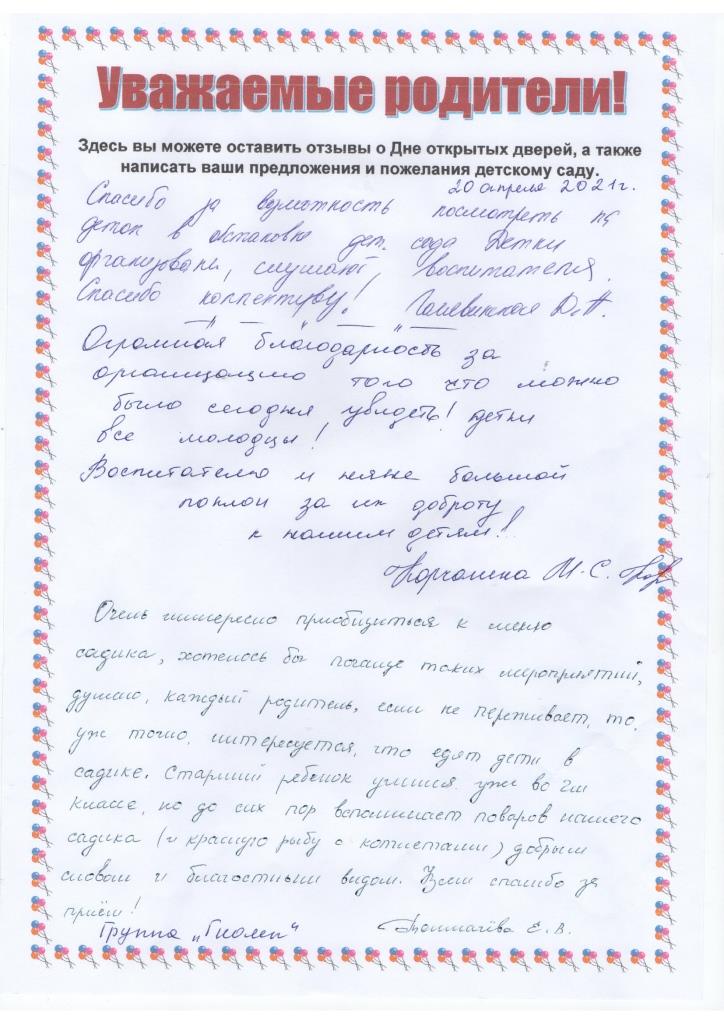 Уважаемые родители!
Здесь вы можете оставить отзывы о Дне открытых дверей, а также
написать ваши предложения и пожелания детскому саду.
20 апреля 2021г.
Спасибо за возможность посмотреть на
деток в обстановке дет. сада Детки
организованы, слушают воспитателя.
Спасибо коллективу! Д.А.
Огромная благодарность за
организацию того что можно
было сегодня увидеть! Детки
все молодцы!
Воспитателю и няне большой
поклон за их доброту
к нашим детям!
М.С.
Очень интересно приобщиться к меню
садика, хотелось бы почаще таких мероприятий,
думаю, каждый родитель, если не переживает, то
уж точно, интересуется, что едят дети в
садике. Старший ребёнок учится уже во 2м
классе, но до сих пор вспоминает поваров нашего
садика (и красную рыбу с котлетами) добрым
словом и благостным видом. Всем спасибо за
приём!
Группа Толмачёва Е.В.